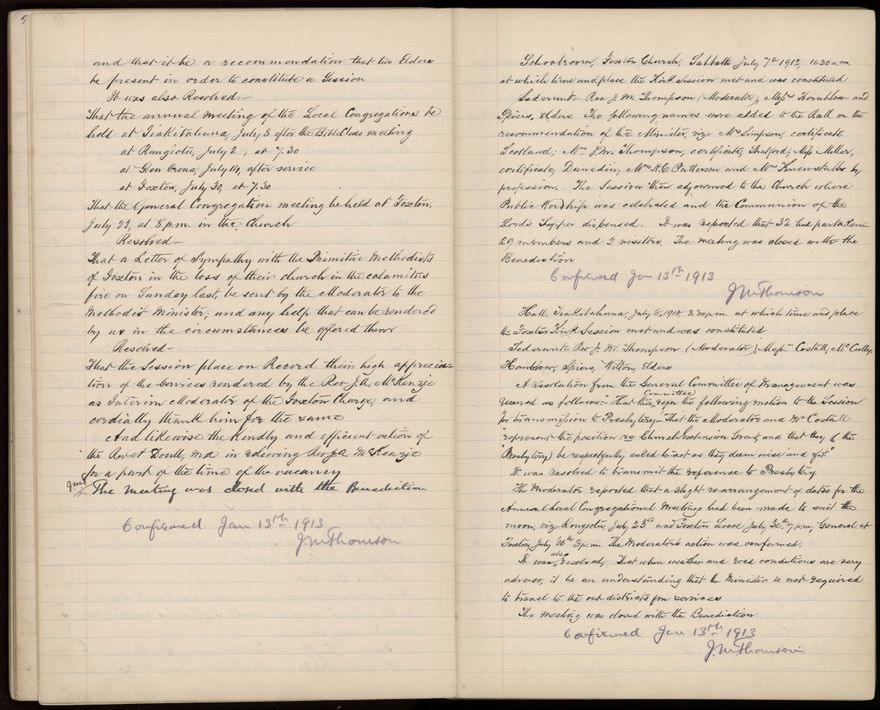 and that it be a recommendation that two Elders
be present in order to constitute a Session
It was also Resolved:—
That the annual meeting of the Local Congregations be
held at Tiakitahuna, July 5 after the Bible Class meeting
at Rangiotu, July 2, at 7.30
at Glen Oroua, July 14, after service
at Foxton, July 30, at 7.30
That the General Congregation meeting be held at Foxton,
July 22, at 8 p.m. in the Church
Resolved—
That a Letter of Sympathy with the Primitive Methodists
of Foxton in the loss of their church in the calamitous
fire on Sunday last, be sent by the Moderator to the
Methodist Minister; and any help that can be rendered
by us in the circumstances be offered them
Resolved—
That the Session place on Record their high apprecia-
tion of the services rendered by the Rev J.A. McKenzie
as Interim Moderator of the Foxton Charge, and
cordially thank him for the same
And likewise the kindly and efficient action of
the Revd Doull, M.A. in relieving Rev J.A. McKenzie
for a part of the time of the vacancy
The meeting was closed with the Benediction
Confirmed Jan 13th 1913
J M Thomson
Schoolroom, Foxton Church, Sabbath July 7th 1912, 10.30 a.m
at which time and place the Kirk Session met and was constituted
Sederunt: Rev J. M. Thompson (Moderator), Messrs Hornblow and
Spiers, Elders. The following names were added to the Roll on the
recommendation of the Minister, viz Mrs Simpson, certificate,
Scotland; Mrs J.M. Thompson, certificate, Miss Miller,
certificate, Dunedin, Mrs Patterson and Mrs by
profession. The Session then adjourned to the Church where
Public Worship was celebrated and the Communion of the
Lords Supper dispensed. It was reported that 32 had partaken
29 members and 3 visitors. The meeting was closed with the
Benediction
Confirmed Jan 13th 1913
J M Thomson
Hall, Tiakitahuna, July 5, 1912 3.30 p.m. at which time and place
the Foxton Kirk Session met and was constituted
Sederunt: Rev J. M. Thompson (Moderator), Messrs Costall, McCulloy,
Hornblow, Spiers, Wilton, Elders
A Resolution from the General Committee of Management was
received as follows:— "That this Committee refer the following motion to the Session
for transmission to Presbytery:— "That the Moderator and Mr Costall
represent the position re Church Extension Grant, and that they (the
Presbytery) be respectfully asked to act as they deem wise and fit"
It was resolved to transmit the reference to Presbytery.
The Moderator reported that a slight re-arrangement of dates for the
Annual Local Congregational Meetings had been made to suit the
moon, viz: Rangiotu, July 23rd and Foxton Local July 30th 7 p.m., General at
Foxton, July 30th 8 p.m. The Moderator's action was confirmed.
It was also resolved: That when weather and road conditions are very
adverse, it be an understanding that the Minister is not required
to travel to the out districts for services
The meeting was closed with the Benediction
Confirmed Jan 13th 1913
J. M Thomson